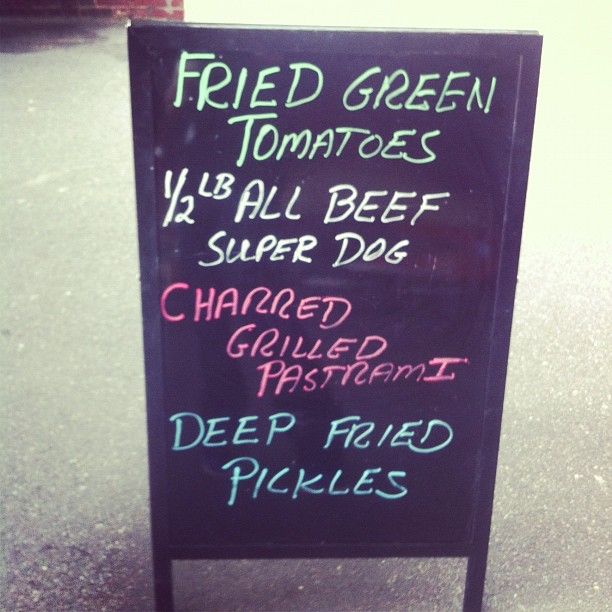 FRIED GREEN
TOMATOES
1/2 LB ALL BEEF
SUPER DOG
CHARRED
GRILLED
PASTRAMI
DEEP FRIED
PICKLES